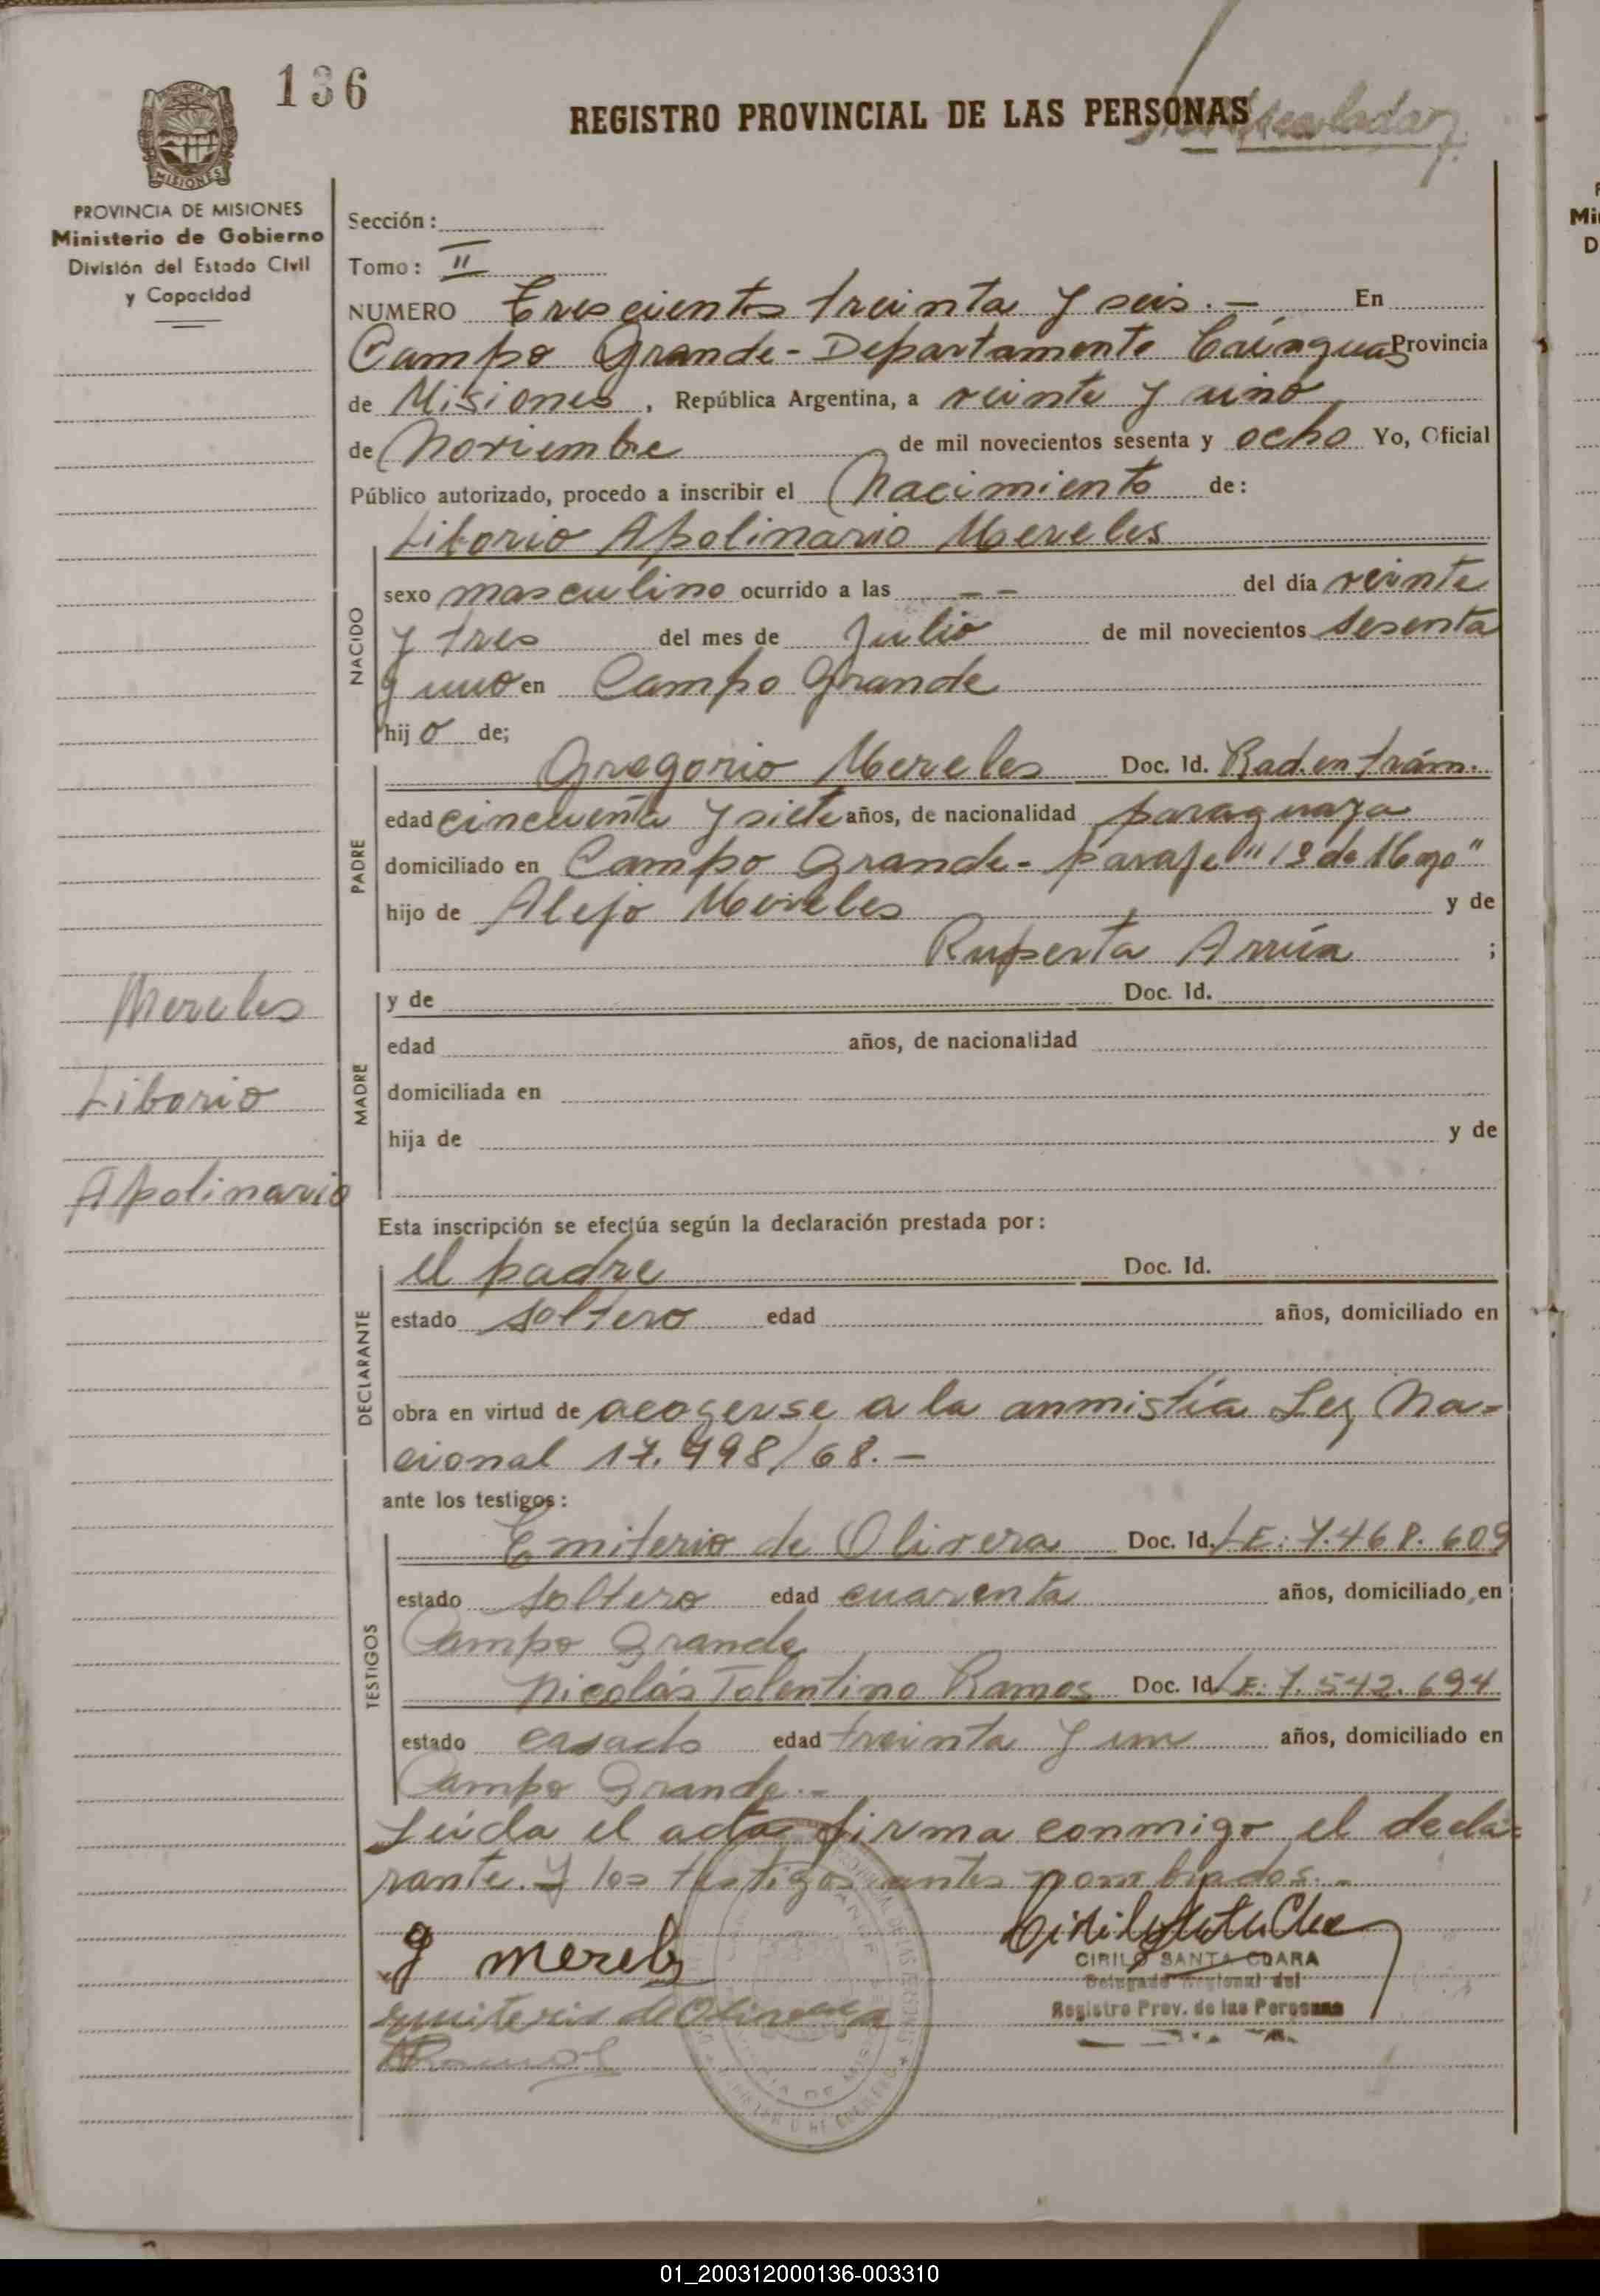 136
REGISTRO PROVINCIAL DE LAS PERSONAS
MISIONES
PROVINCIA DE MISIONES
Ministerio de Gobierno
División del Estado Civil
y Capacidad
Sección:
Tomo: II
NUMERO Trescientos treinta y seis.- En
Campo Grande - Departamento Cainguas Provincia
de Misiones, República Argentina, a veinte y uno
de Noviembre de mil novecientos sesenta y ocho Yo, Oficial
Público autorizado, procedo a inscribir el Nacimiento de:
Liborio Apolinario Mereles
NACIDO
sexo masculino ocurrido a las -- del día veinte
y tres del mes de Julio de mil novecientos sesenta
y uno en Campo Grande
hijo de;
PADRE
Gregorio Mereles Doc. Id. Rad. en trám.
edad cincuenta y siete años, de nacionalidad paraguaya
domiciliado en Campo Grande - paraje "1º de Mayo"
hijo de Alejo Mereles y de
Ruperta Arrúa ;
MADRE
y de Doc. Id.
edad años, de nacionalidad
domiciliada en
hija de y de
Mereles
Liborio
Apolinario
Esta inscripción se efectúa según la declaración prestada por:
DECLARANTE
el padre Doc. Id.
estado soltero edad años, domiciliado en
obra en virtud de acogerse a la anmistía Ley Na-
cional 17.998/68.-
ante los testigos:
TESTIGOS
Emiterio de Olivera Doc. Id. LE: 7.468.609
estado soltero edad cuarenta años, domiciliado en
Campo Grande
Nicolás Tolentino Ramos Doc. Id. LE: 7.542.694
estado casado edad treinta y un años, domiciliado en
Campo Grande.-
Leída el acta firma conmigo el decla-
rante y los testigos antes nombrados.-
g merels
emiterio de Olivera
CIRILO SANTA CLARA
Delegado Regional del
Registro Prov. de las Personas
01_200312000136-003310